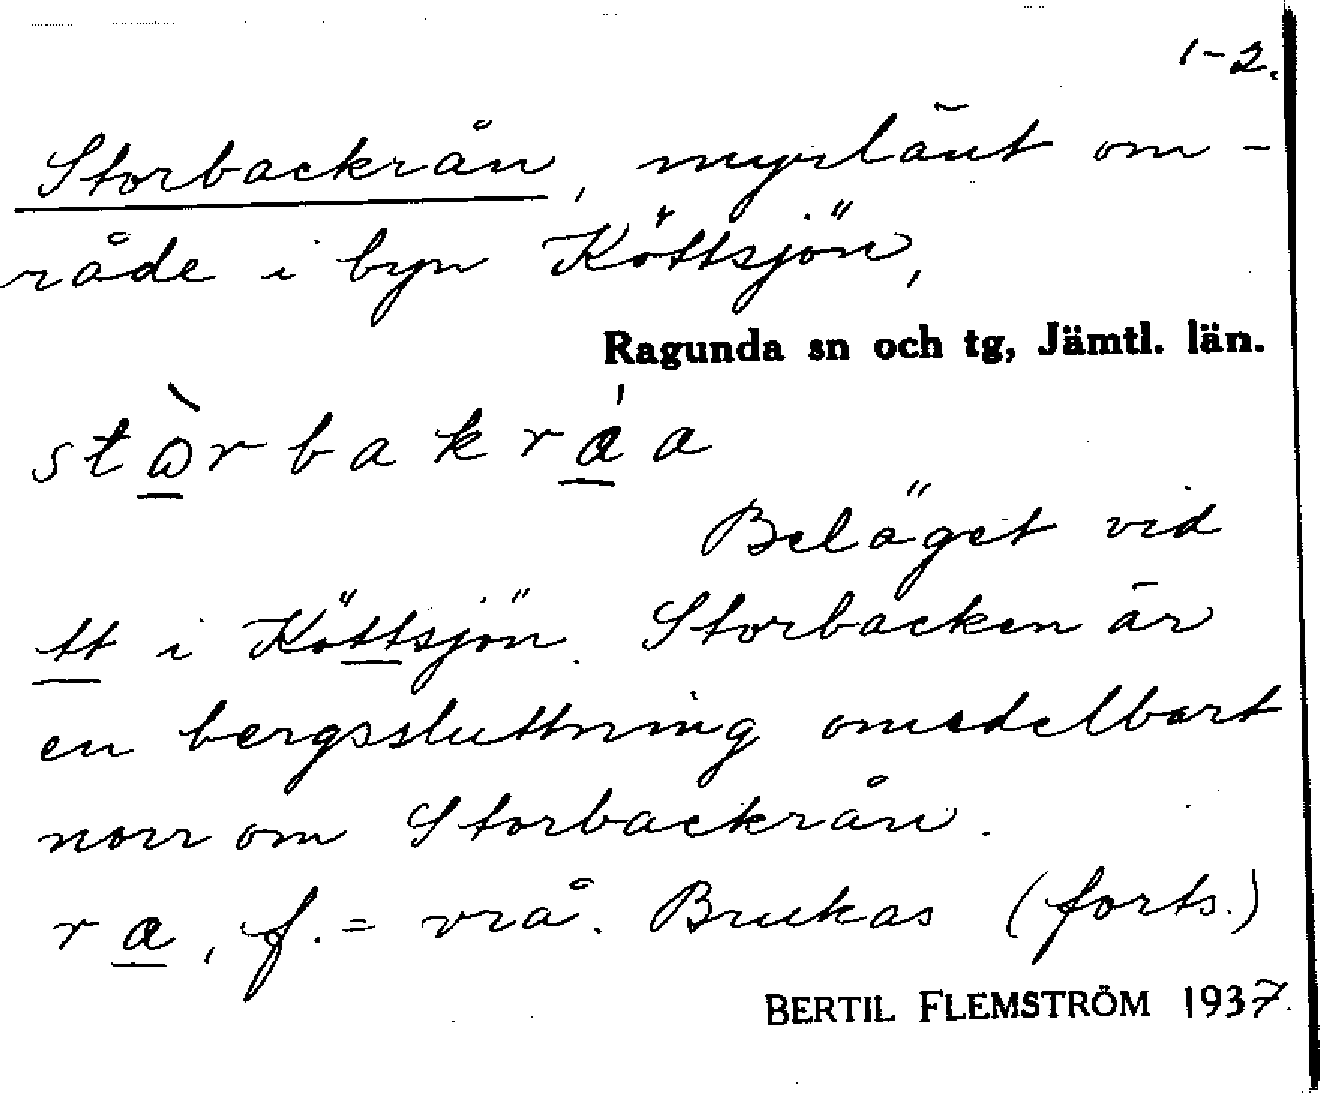 1-2.
Storbackrån, myrlänt om-
råde i byn Köttsjön,
Ragunda sn och tg, Jämtl. län.
stɷ̀rbakráa
Beläget vid
tt i Köttsjön. Storbacken är
en bergssluttning omedelbart
norr om Storbackrån.
ra, f. = vrå. Brukas (forts.)
BERTIL FLEMSTRÖM 1937.